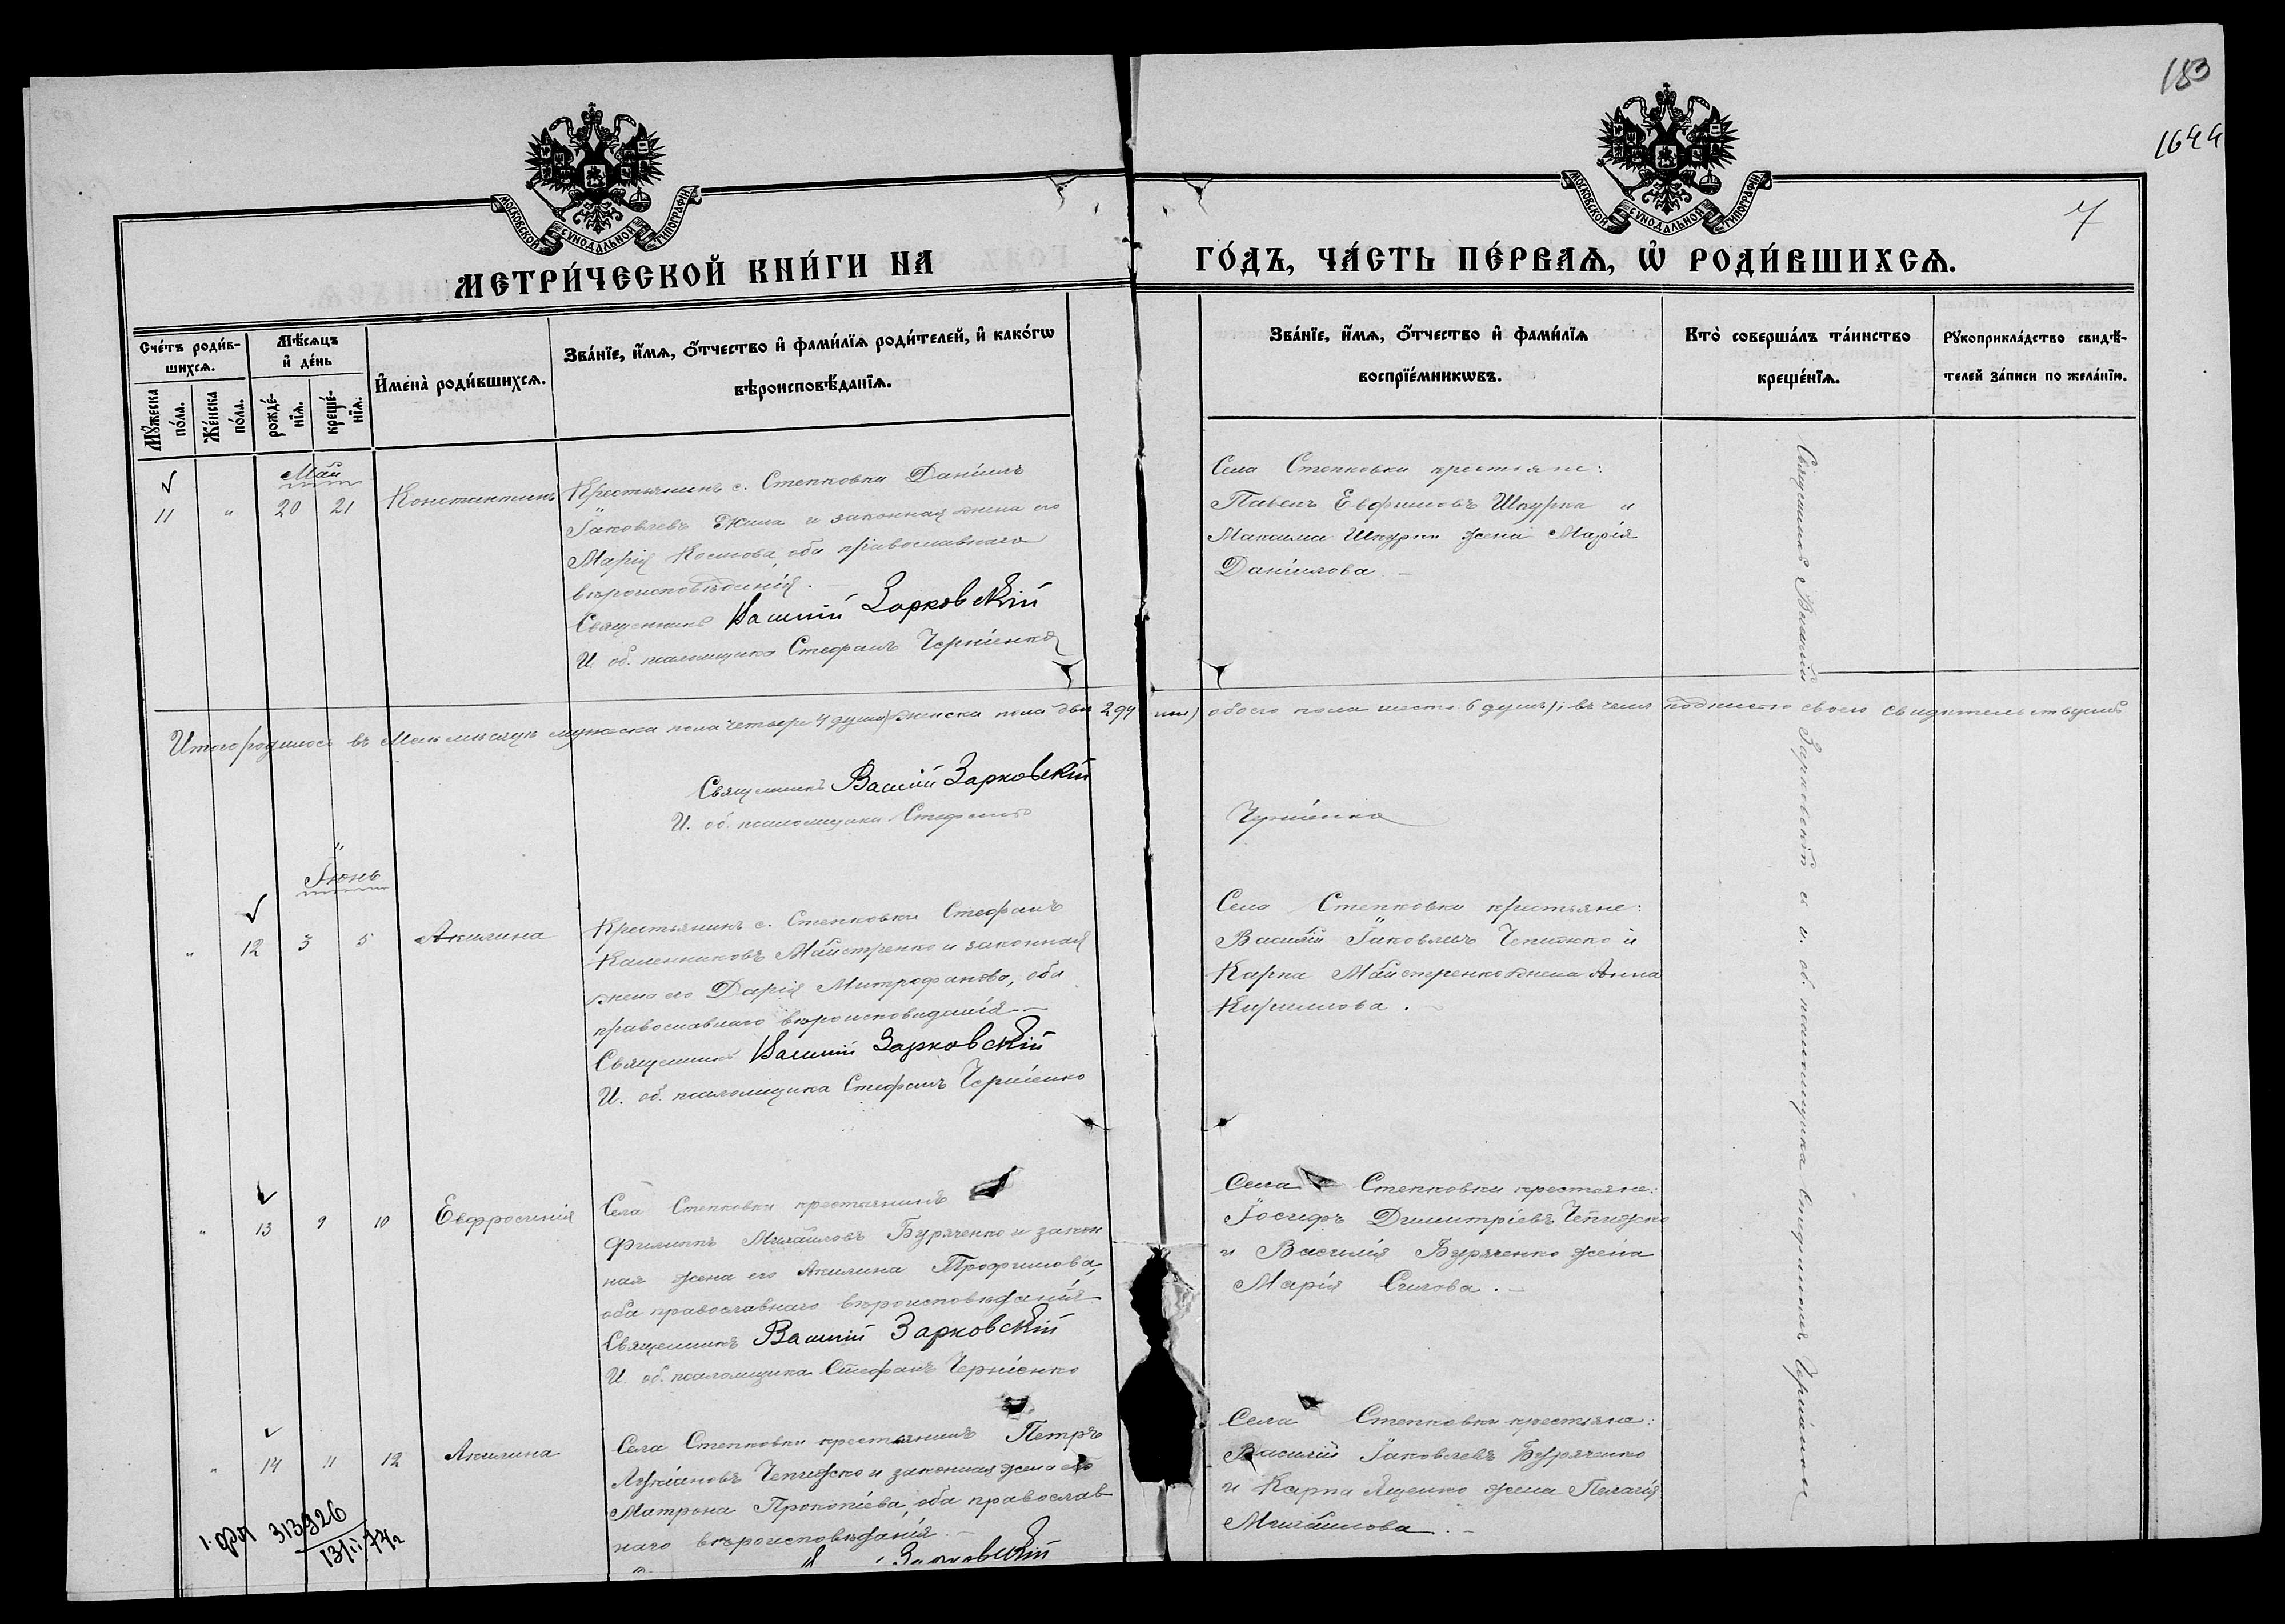 183
1644
7
МОСКОВСКОЙ СѴНОДАЛЬНОЙ ТИПОГРАФІИ
МОСКОВСКОЙ СѴНОДАЛЬНОЙ ТИПОГРАФІИ
МЕТРИ́ЧЕСКОЙ КНИ́ГИ НА ГО́ДЪ, ЧА́СТЬ ПЕ́РВАѦ, Ѽ РОДИ́ВШИХСѦ.
Сче́тъ роди́в-
шихсѧ.
Мꙋ́жеска по́ла.
Же́нска по́ла.
Мѣ́сѧцъ
и҆ де́нь
рожде́-
нїѧ.
креще́-
нїѧ.
И҆мена̀ роди́вшихсѧ.
Зва́нїе, и҆́мѧ, ѻ҆́тчество и҆ фами́лїѧ роди́телей, и҆ како́гѡ
вѣроисповѣ́данїѧ.
Зва́нїе, и҆́мѧ, ѻ҆́тчество и҆ фами́лїѧ
воспрїе́мникѡвъ.
Кто̀ соверша́лъ та́инство
креще́нїѧ.
Рꙋкоприкла́дство свидѣ́-
телей за́писи по жела́нїю.
Май
11 " 20 21 Константинъ
Крестьянинъ с. Степковки Даніилъ
Іаковлевъ Жила и законная жена его
Марія Космова, оба православнаго
вѣроисповѣданія.
Священникъ Василій Зарковскій
И. об. псаломщика Стефанъ Черніенко
Села Степковки крестьяне:
Павелъ Евфимовъ Шкурка и
Максима Шкурки жена Марія
Даніилова.
Итого родилось въ Маѣ мѣсяцѣ мужеска пола четыре 4 душъ) женска пола двѣ 2 душ) обоего пола шесть 6 душъ); въ чемъ подписью своею свидѣтельствуемъ
Священникъ Василій Зарковскій
И. об. псаломщика Стефанъ Черніенко
Іюнь
" 12 3 5 Акилина
Крестьянинъ с. Степковки Стефанъ
Каленниковъ Майстренко и законная
жена его Дарія Митрофанова, оба
православнаго вѣроисповѣданія
Священникъ Василій Зарковскій
И. об. псаломщика Стефанъ Черніенко
Села Степковки крестьяне:
Василій Іаковлевъ Чепижко и
Карпа Майстренко жена Анна
Кириллова.
" 13 9 10 Евфросинія
Села Степковки крестьянинъ
Филиппъ Михайловъ Буряченко и закон
ная жена его Акилина Трофимова,
оба православнаго вѣроисповѣданія
Священникъ Василій Зарковскій
И. об. псаломщика Стефанъ Черніенко
Села Степковки крестьяне:
Іосифъ Димитріевъ Чепижко
и Василія Буряченко жена
Марія Силова.
" 14 11 12 Акилина
Села Степковки крестьянинъ Петръ
Лукіановъ Чепижко и законная жена его
Матрона Прокопіева, оба православ
наго вѣроисповѣданія.
Зарковскій
Села Степковки крестьяне:
Василій Іаковлевъ Буряченко
и Карпа Яценко жена Пелагія
Михайлова.
Священникъ Василій Зарковскій и и. об. псаломщика Стефанъ Черніенко
313926